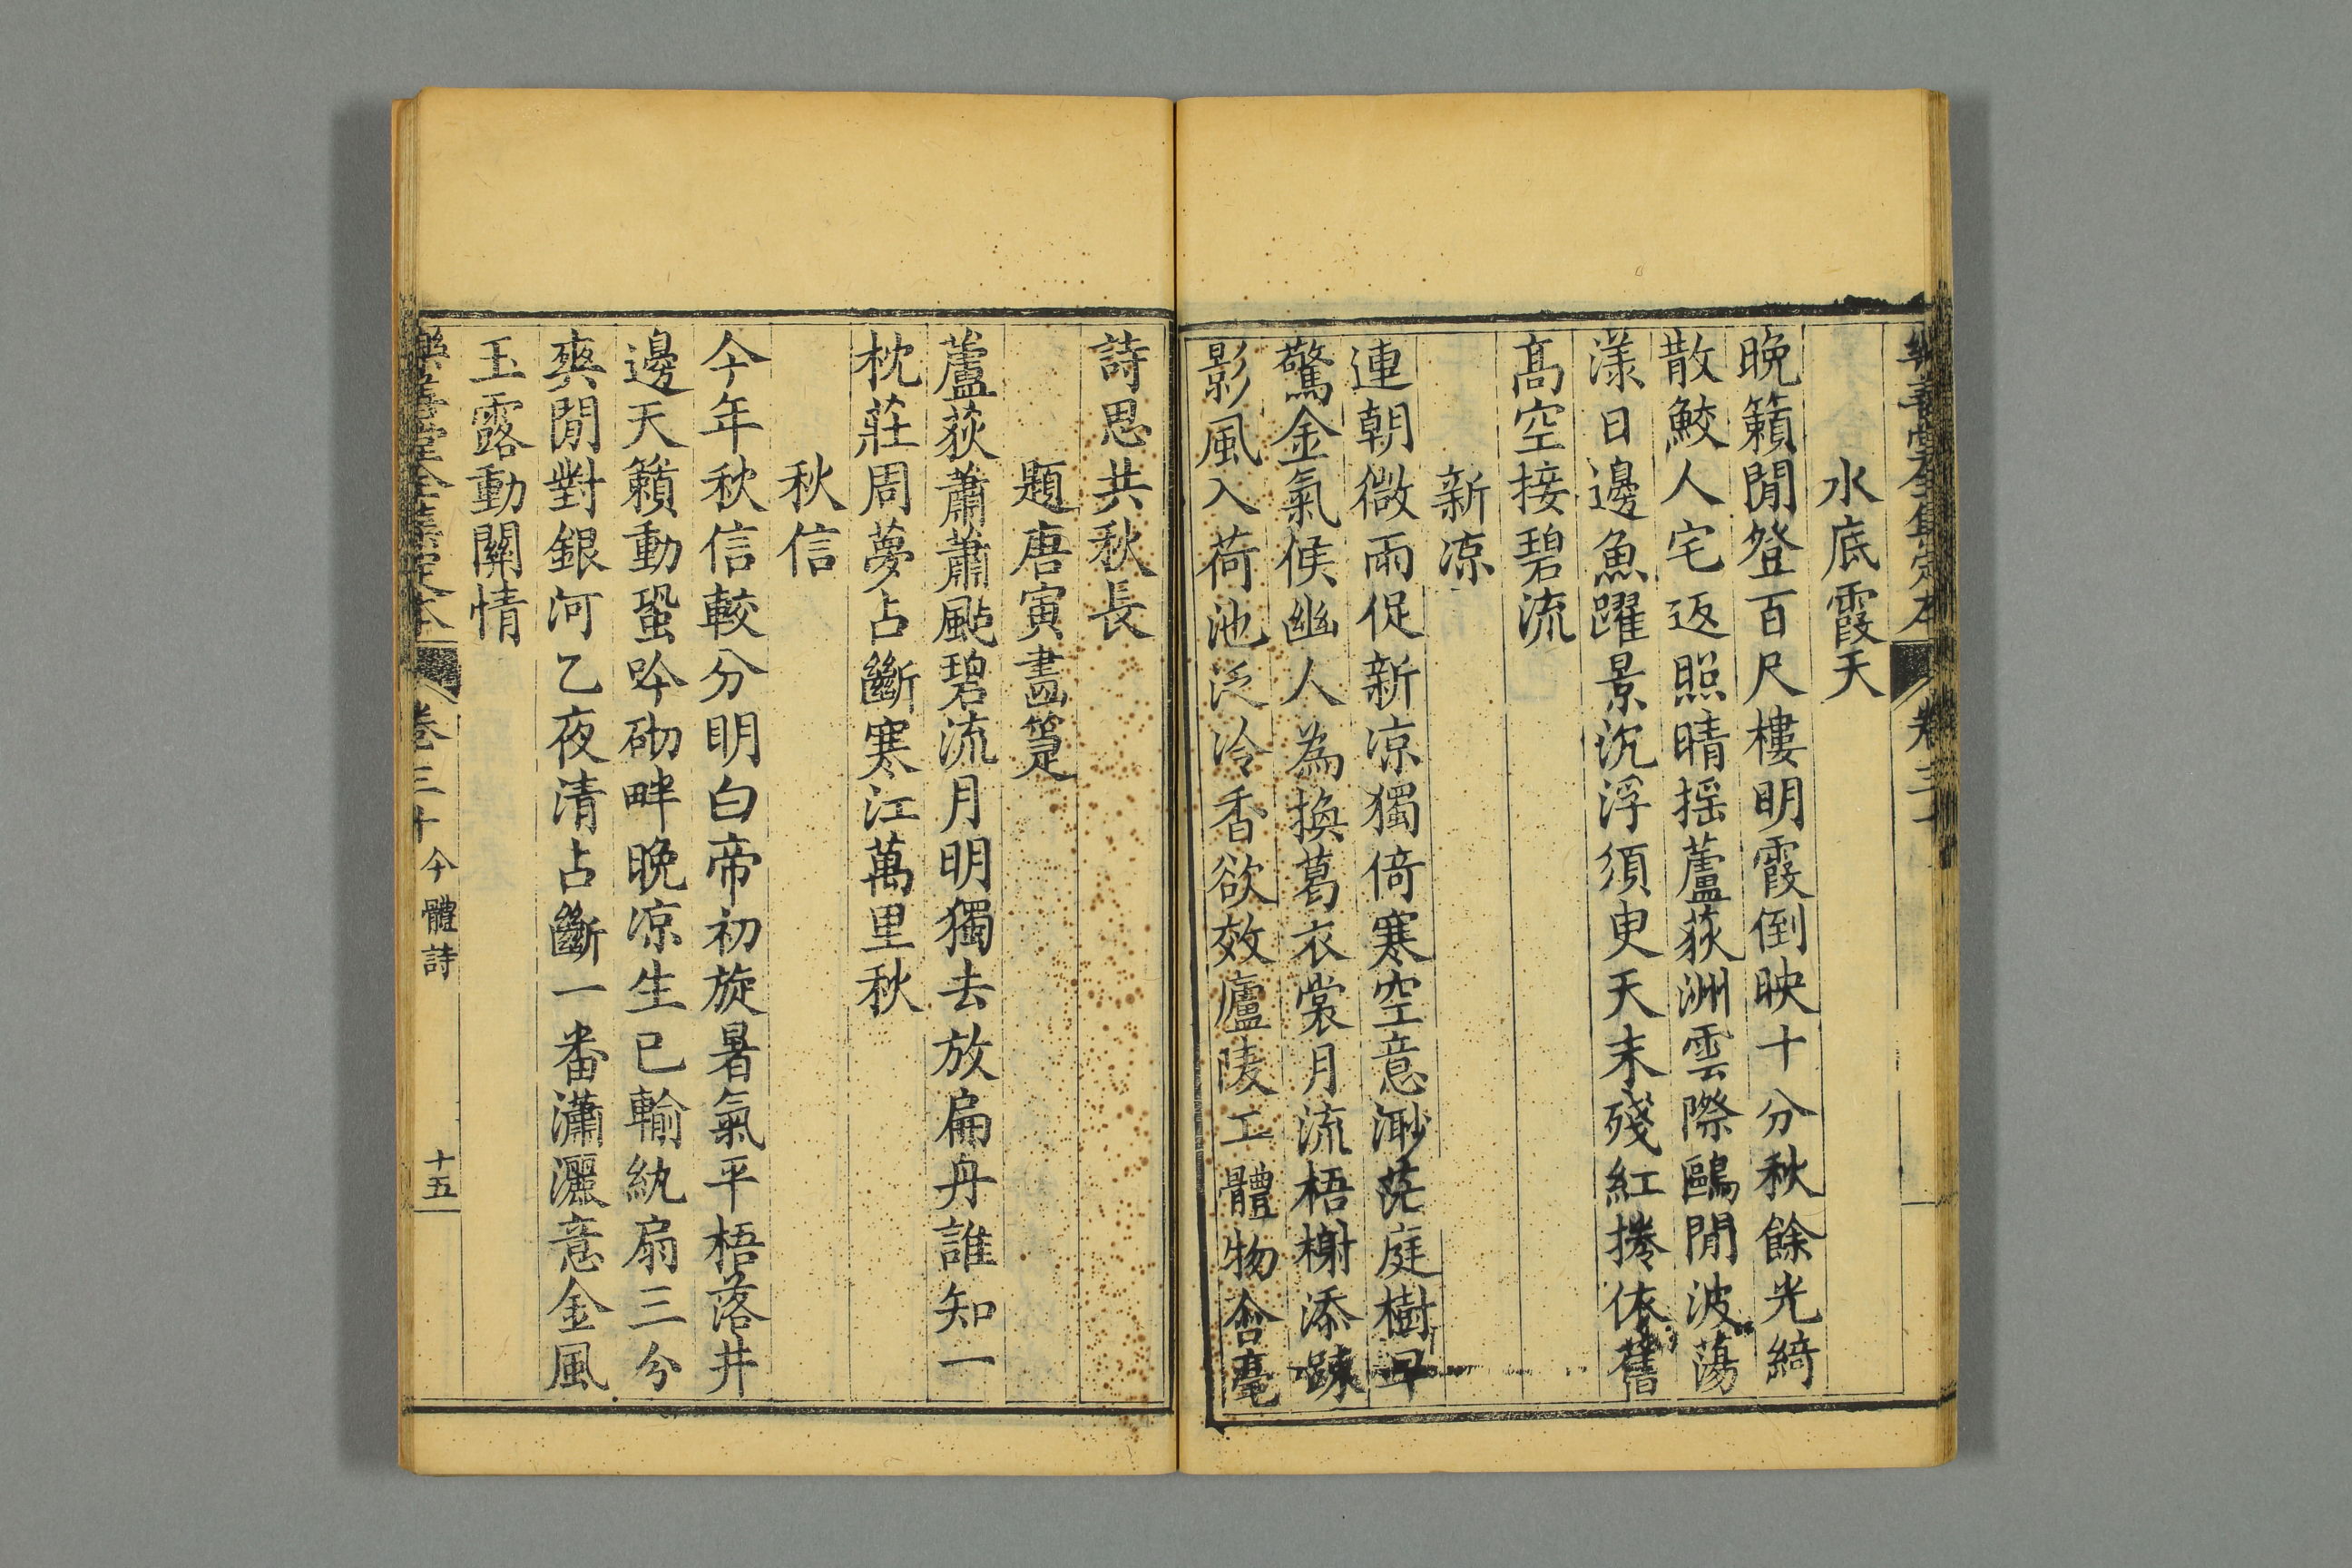 樂善堂全集定本 卷三十
水底霞天
晚籟閒登百尺樓明霞倒映十分秋餘光綺
散鮫人宅返照晴搖蘆荻洲雲際鷗閒波蕩
漾日邊魚躍景沉浮須臾天末殘紅捲依舊
髙空接碧流
新凉
連朝微雨促新凉獨倚寒空意渺茫庭樹早
驚金氣候幽人為換葛衣裳月流梧榭添踈
影風入荷池泛冷香欲效廬陵工體物含毫
詩思共秋長
題唐寅畫箑
蘆荻蕭蕭颭碧流月明獨去放扁舟誰知一
枕莊周夢占斷寒江萬里秋
秋信
今年秋信較分明白帝初旋暑氣平梧落井
邊天籟動蛩吟砌畔晚凉生已輸紈扇三分
爽閒對銀河乙夜清占斷一番瀟灑意金風
玉露動關情
樂善堂全集定本 卷三十 今體詩 十五